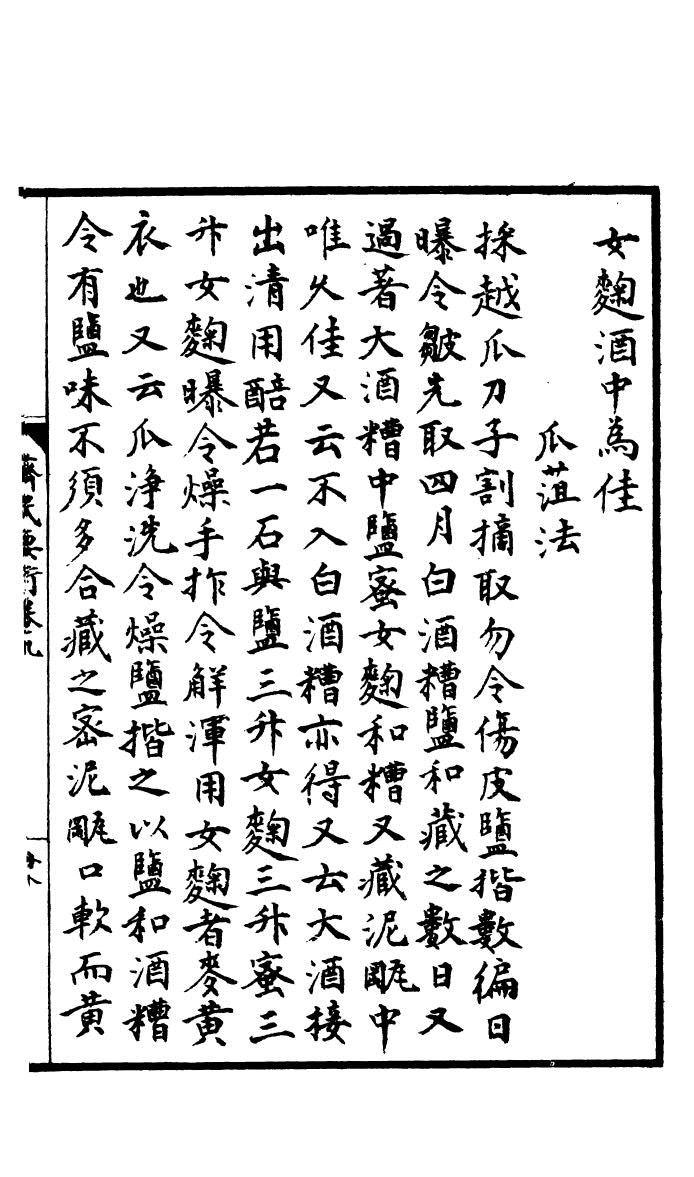 女麴酒中為佳
瓜菹法
採越瓜刀子割摘取勿令傷皮鹽揩數徧日
曝令皺先取四月白酒糟鹽和藏之數日又
過著大酒糟中鹽蜜女麴和糟又藏泥瓹中
唯久佳又云不入白酒糟亦得又云大酒接
出清用醅若一石與鹽三升女麴三升蜜三
升女麴曝令燥手拃令解渾用女麴者麥黃
衣也又云瓜浄洗令燥鹽揩之以鹽和酒糟
令有鹽味不須多合藏之宻泥瓹口軟而黃
齊民要術卷九